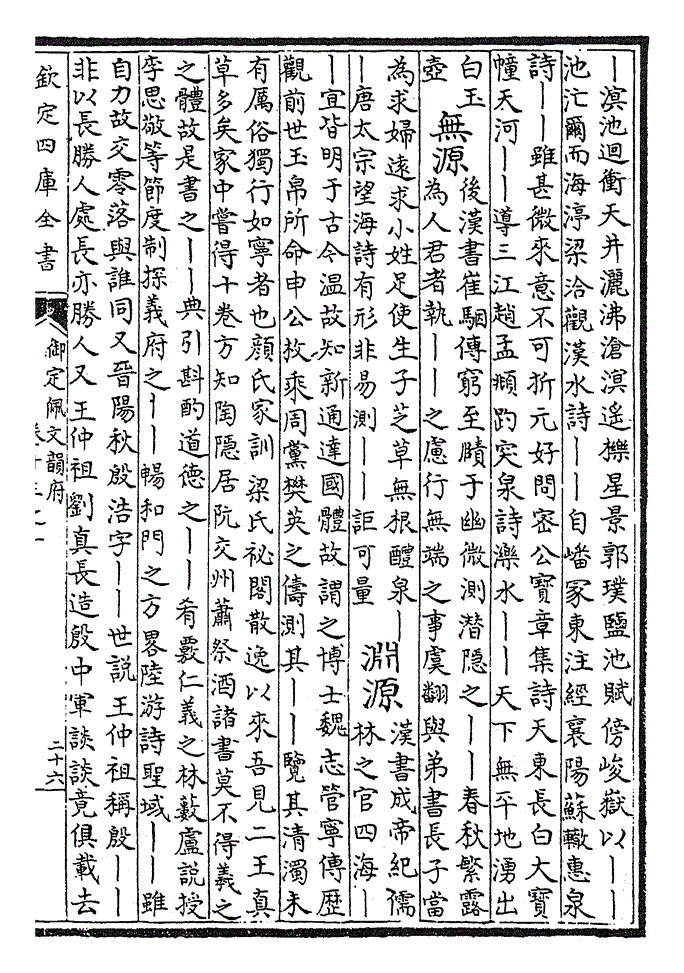 ｜滇池迴衝天井灑沸滄溟遙櫟星景郭璞鹽池賦傍峻嶽以｜｜
池汒爾而海渟梁洽觀漢水詩｜｜自嶓冢東注經襄陽蘇轍惠泉
詩｜｜雖甚微來意不可折元好問密公寶章集詩天東長白大寶
幢天河｜｜導三江趙孟頫趵突泉詩濼水｜｜天下無平地湧出
白玉壺
無源
後漢書崔駰傳窮至賾于幽微測潛隱之｜｜春秋繁露
為人君者執｜｜之慮行無端之事虞翻與弟書長子當
為求婦遠求小姓足使生子芝草無根醴泉｜
｜唐太宗望海詩有形非易測｜｜詎可量
淵源
漢書成帝紀儒
林之官四海｜
｜宜皆明于古今温故知新通達國體故謂之博士魏志管寧傳歴
觀前世玉帛所命申公枚乘周黨樊英之儔測其｜｜覽其清濁未
有厲俗獨行如寧者也顔氏家訓梁氏祕閣散逸以來吾見二王真
草多矣家中嘗得十卷方知陶隠居阮交州蕭祭酒諸書莫不得羲之
之體故是書之｜｜典引斟酌道德之｜｜肴覈仁義之林藪盧說授
李思敬等節度制探義府之｜｜暢和門之方畧陸游詩聖域｜｜雖
自力故交零落與誰同又晉陽秋殷浩字｜｜世説王仲祖稱殷｜｜
非以長勝人處長亦勝人又王仲祖劉真長造殷中軍談談竟俱載去
欽定四庫全書
御定佩文韻府
二十六